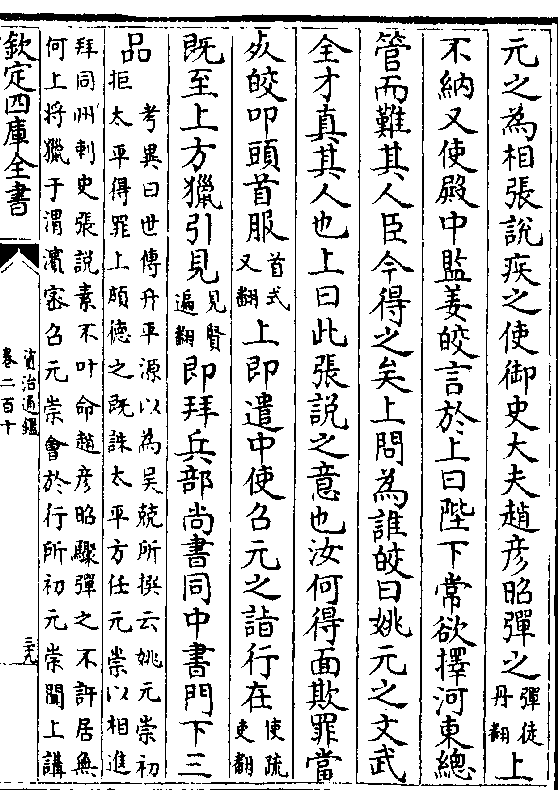 元之為相張說疾之使御史大夫趙彦昭彈之彈徒丹翻上
不納又使殿中監姜皎言於上曰陛下常欲擇河東總
管而難其人臣今得之矣上問為誰皎曰姚元之文武
全才真其人也上曰此張說之意也汝何得面欺罪當
死皎叩頭首服首式又翻上即遣中使召元之詣行在使疏吏翻
既至上方獵引見見賢遍翻即拜兵部尚書同中書門下三
品
考異曰世傳升平源以為吳兢所撰云姚元崇初
拒太平得罪上頗德之既誅太平方任元崇以相進
拜同州刺史張說素不叶命趙彦昭驟彈之不許居無
何上將獵于渭濱密召元崇會於行所初元崇聞上講
欽定四庫全書
資治通鑑
卷二百十
三九